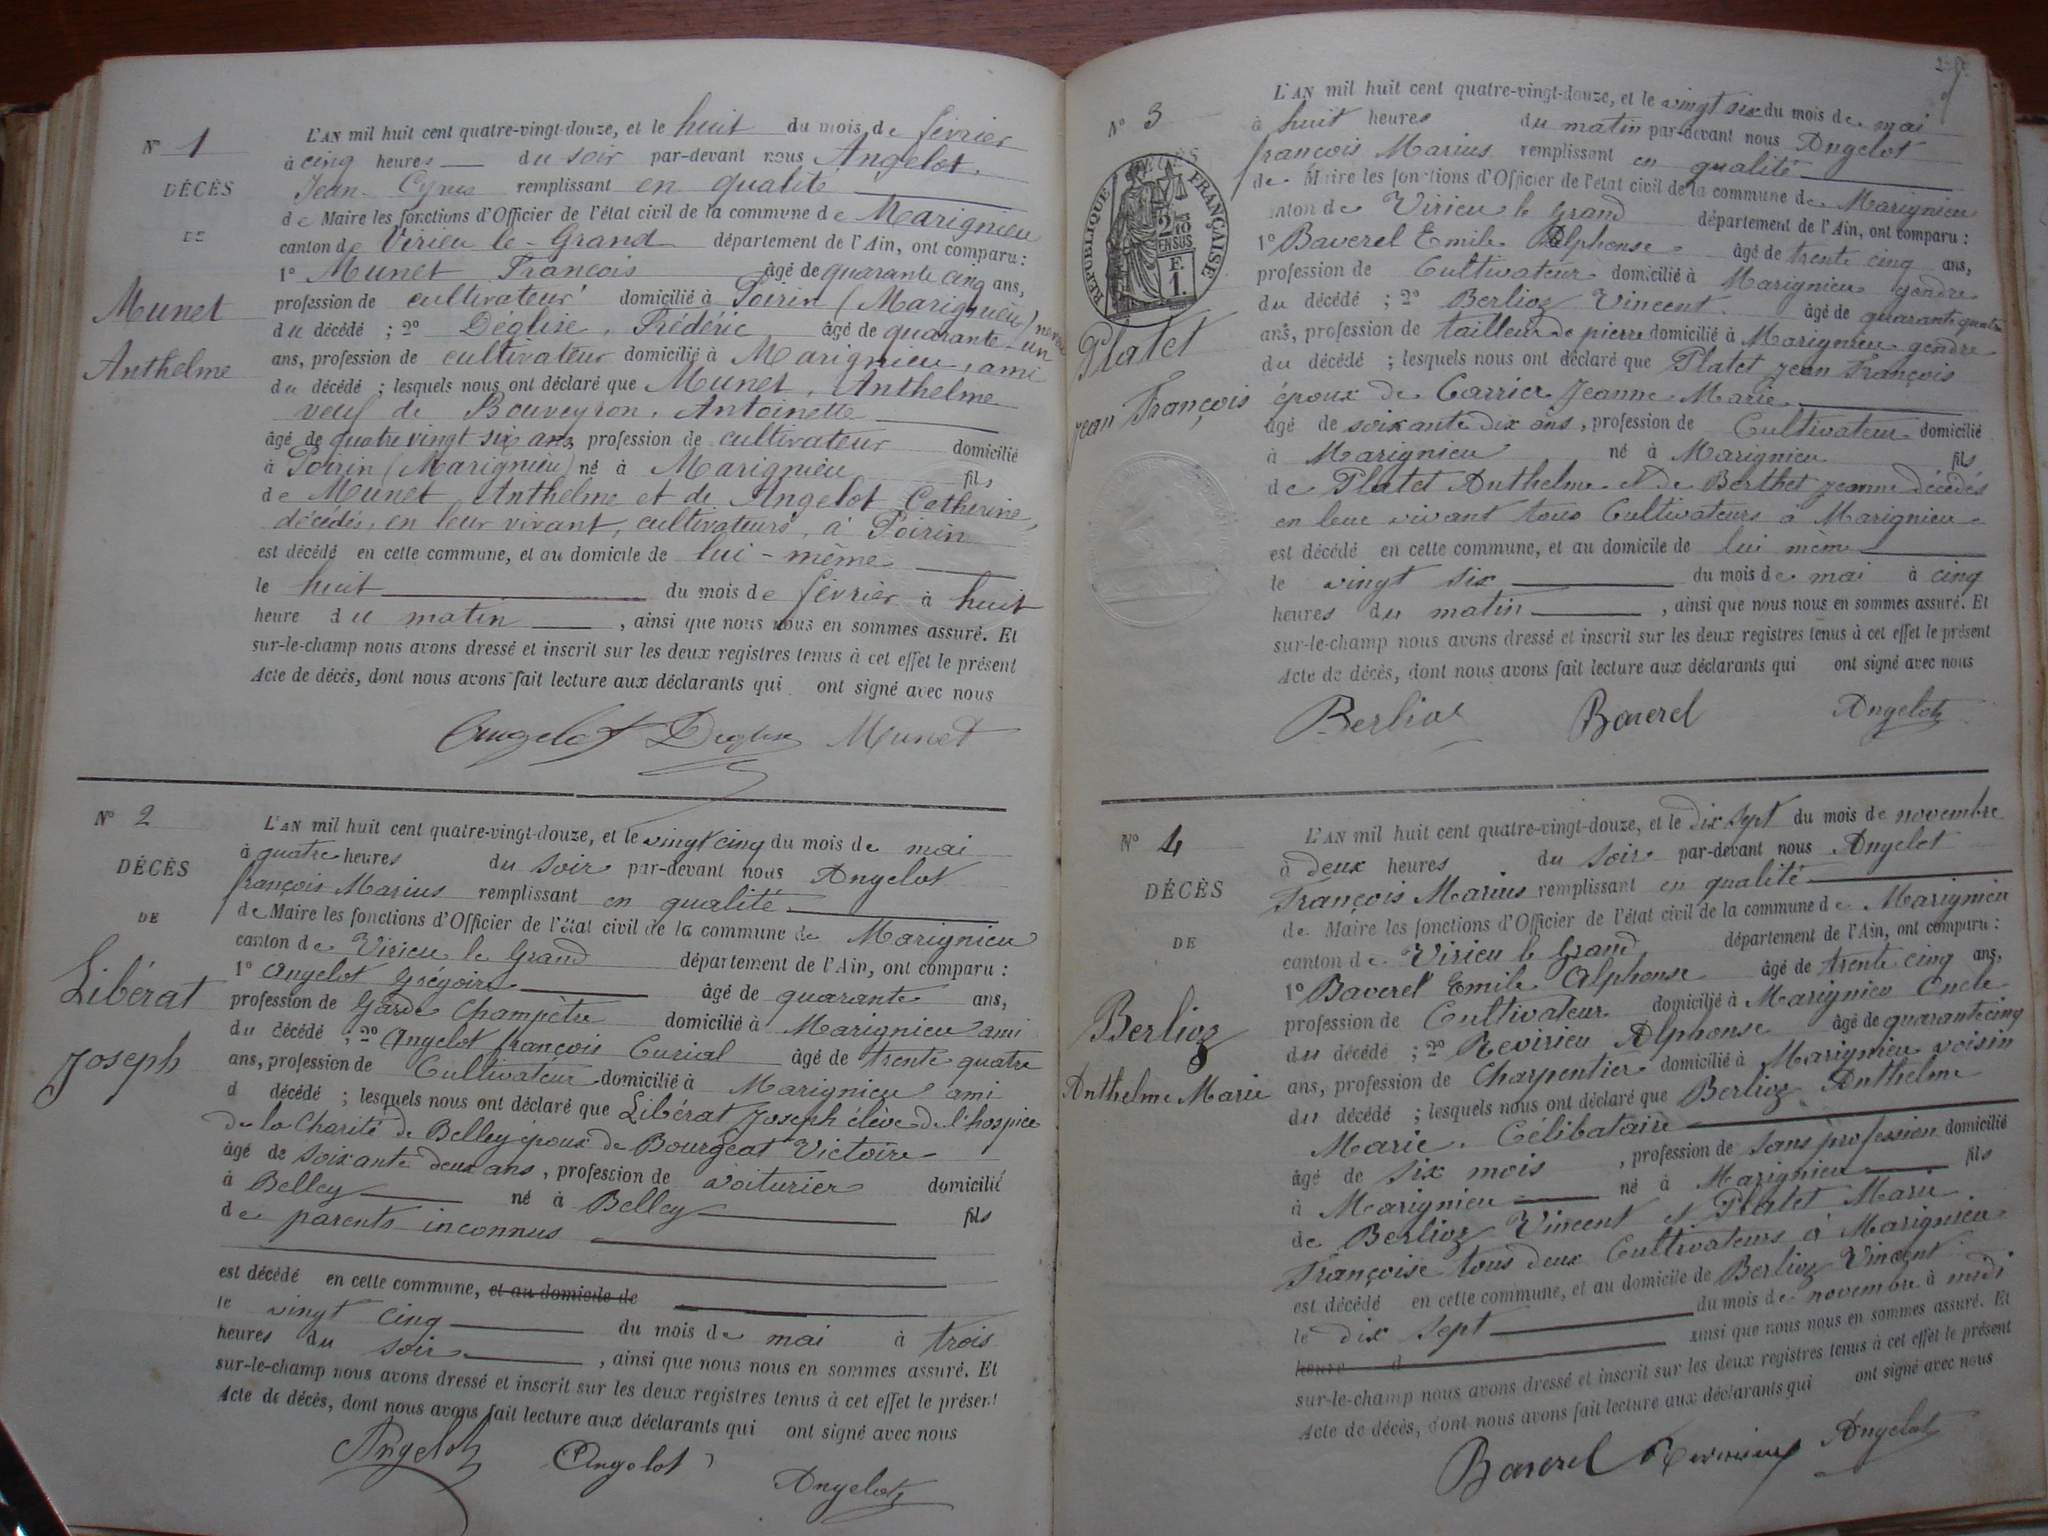 N° 1
DÉCÈS
DE
Munet
Anthelme
L'AN mil huit cent quatre-vingt-douze, et le huit du mois de février
à cinq heures du soir par-devant nous Angelot,
Jean Cyrus remplissant en qualité
de Maire les fonctions d'Officier de l'état civil de la commune de Marignieu
canton de Virieu-le-Grand département de l'Ain, ont comparu :
1° Munet François âgé de quarante cinq ans,
profession de cultivateur domicilié à Poirin (Marignieu) neveu
du décédé ; 2° Déglise, Frédéric âgé de quarante-un
ans, profession de cultivateur domicilié à Marignieu, ami
du décédé ; lesquels nous ont déclaré que Munet, Anthelme
veuf de Bouveyron, Antoinette
âgé de quatre vingt six ans, profession de cultivateur domicilié
à Poirin (Marignieu) né à Marignieu fils
de Munet Anthelme et de Angelot Catherine,
décédés, en leur vivant, cultivateurs, à Poirin
est décédé en cette commune, et au domicile de lui-même
le huit du mois de février à huit
heure du matin, ainsi que nous nous en sommes assuré. Et
sur-le-champ nous avons dressé et inscrit sur les deux registres tenus à cet effet le présent
Acte de décès, dont nous avons fait lecture aux déclarants qui ont signé avec nous
Angelot Deglise Munet
N° 2
DÉCÈS
DE
Libérat
Joseph
L'AN mil huit cent quatre-vingt-douze, et le vingt cinq du mois de mai
à quatre heures du soir par-devant nous Angelot
françois Marius remplissant en qualité
de Maire les fonctions d'Officier de l'état civil de la commune de Marignieu
canton de Virieu le Grand département de l'Ain, ont comparu :
1° Angelot Grégoire âgé de quarante ans,
profession de Garde Champêtre domicilié à Marignieu ami
du décédé ; 2° Angelot françois Curial âgé de trente quatre
ans, profession de Cultivateur domicilié à Marignieu ami
d décédé ; lesquels nous ont déclaré que Libérat Joseph élève de l'hospice
de la Charité de Belley époux de Bourgeat Victoire
âgé de soixante deux ans, profession de voiturier domicilié
à Belley né à Belley fils
de parents inconnus
est décédé en cette commune, et au domicile de
le vingt cinq du mois de mai à trois
heures du soir, ainsi que nous nous en sommes assuré. Et
sur-le-champ nous avons dressé et inscrit sur les deux registres tenus à cet effet le présent
Acte de décès, dont nous avons fait lecture aux déclarants qui ont signé avec nous
Angelot Angelot Angelot
N° 3
RÉPUBLIQUE FRANÇAISE
2 5/10
EN SUS
F.
1.
Platet
Jean François
L'AN mil huit cent quatre-vingt-douze, et le vingt six du mois de mai
à huit heures du matin par-devant nous Angelot
françois Marius remplissant en qualité
de Maire les fonctions d'Officier de l'état civil de la commune de Marignieu
canton de Virieu le Grand département de l'Ain, ont comparu :
1° Baverel Emile Alphonse âgé de trente cinq ans,
profession de Cultivateur domicilié à Marignieu gendre
du décédé ; 2° Berlioz Vincent âgé de quarante quatre
ans, profession de tailleur de pierre domicilié à Marignieu gendre
du décédé ; lesquels nous ont déclaré que Platet Jean François
époux de Carrier Jeanne Marie
âgé de soixante dix ans, profession de Cultivateur domicilié
à Marignieu né à Marignieu fils
de Platet Anthelme et de Berthet Jeanne décédés
en leur vivant tous Cultivateurs à Marignieu
est décédé en cette commune, et au domicile de lui même
le vingt six du mois de mai à cinq
heures du matin, ainsi que nous nous en sommes assuré. Et
sur-le-champ nous avons dressé et inscrit sur les deux registres tenus à cet effet le présent
Acte de décès, dont nous avons fait lecture aux déclarants qui ont signé avec nous
Berlioz Baverel Angelot
N° 4
DÉCÈS
DE
Berlioz
Anthelme Marie
L'AN mil huit cent quatre-vingt-douze, et le dix sept du mois de novembre
à deux heures du soir par-devant nous Angelot
François Marius remplissant en qualité
de Maire les fonctions d'Officier de l'état civil de la commune de Marignieu
canton de Virieu le Grand département de l'Ain, ont comparu :
1° Baverel Emile Alphonse âgé de trente cinq ans,
profession de Cultivateur domicilié à Marignieu Oncle
du décédé ; 2° Revirieu Alphonse âgé de quarante cinq
ans, profession de Charpentier domicilié à Marignieu voisin
du décédé ; lesquels nous ont déclaré que Berlioz Anthelme
Marie, Célibataire
âgé de six mois, profession de sans profession domicilié
à Marignieu né à Marignieu fils
de Berlioz Vincent et Platet Marie
Françoise tous deux Cultivateurs à Marignieu
est décédé en cette commune, et au domicile de Berlioz Vincent
le dix sept du mois de novembre à midi
heure d ainsi que nous nous en sommes assuré. Et
sur-le-champ nous avons dressé et inscrit sur les deux registres tenus à cet effet le présent
Acte de décès, dont nous avons fait lecture aux déclarants qui ont signé avec nous
Baverel Revirieu Angelot